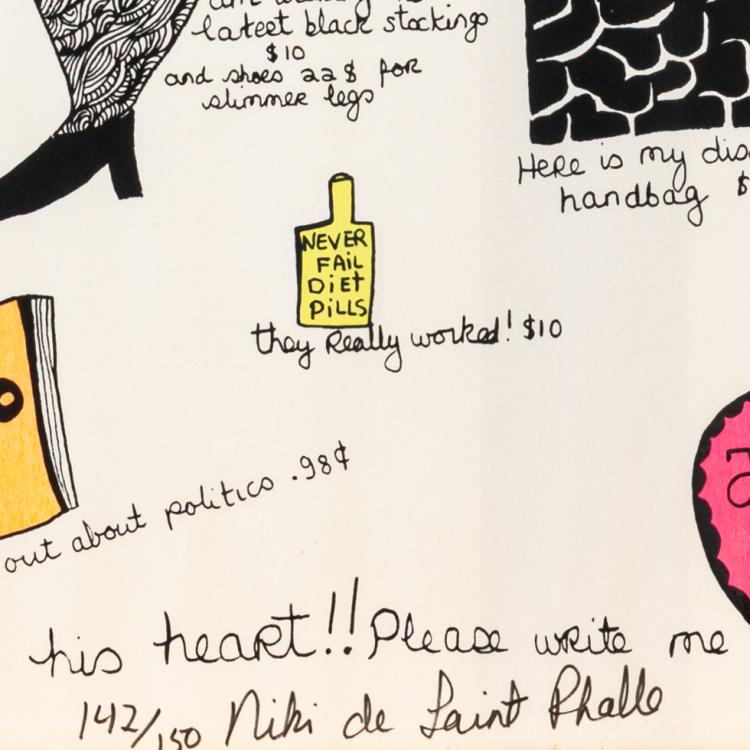 latest black stockings
$10
and shoes 22$ for
slimmer legs
Here is my
handbag $
NEVER
FAIL
DiEt
PiLLS
they Really worked! $10
out about politics .98¢
his heart!! Please write me
142/150 Niki de Saint Phalle